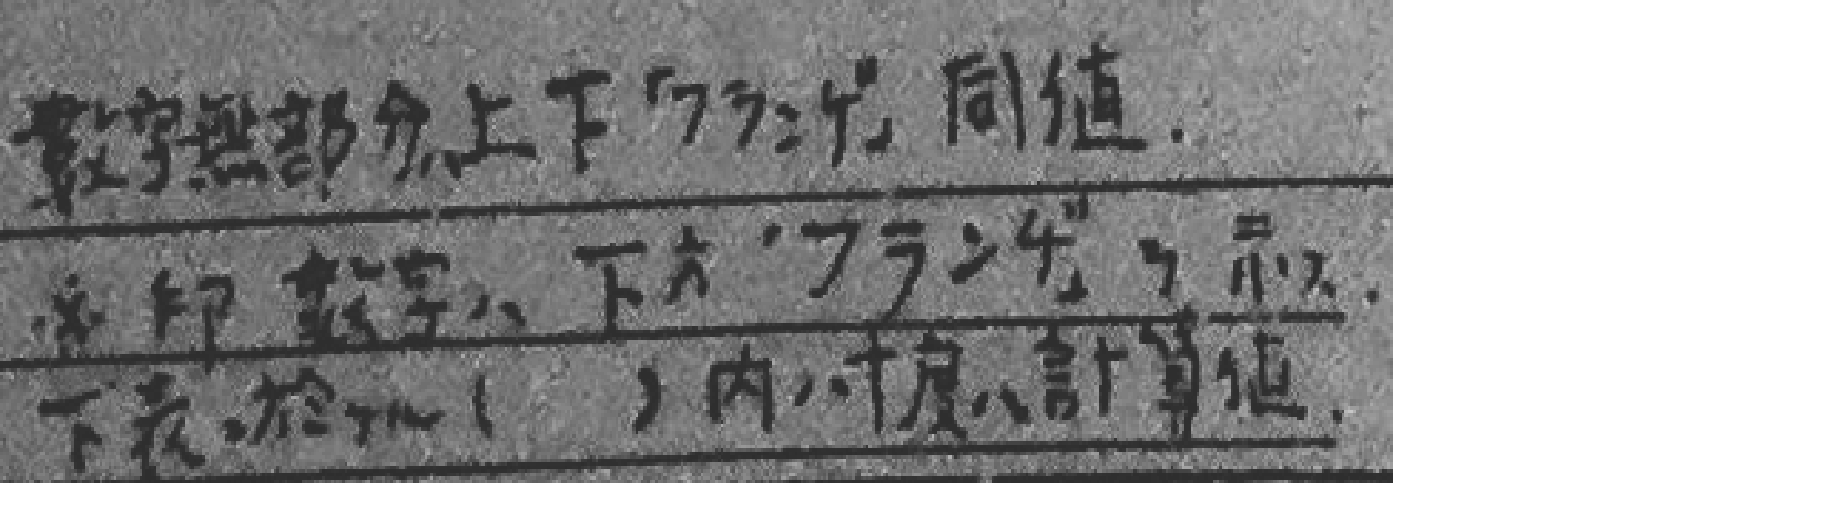 數字無部分ハ上下「フランヂ」同値.
※印數字ハ下方「フランヂ」ヲ示ス.
下表ニ於テル( )内ハ寸度ハ計算値.